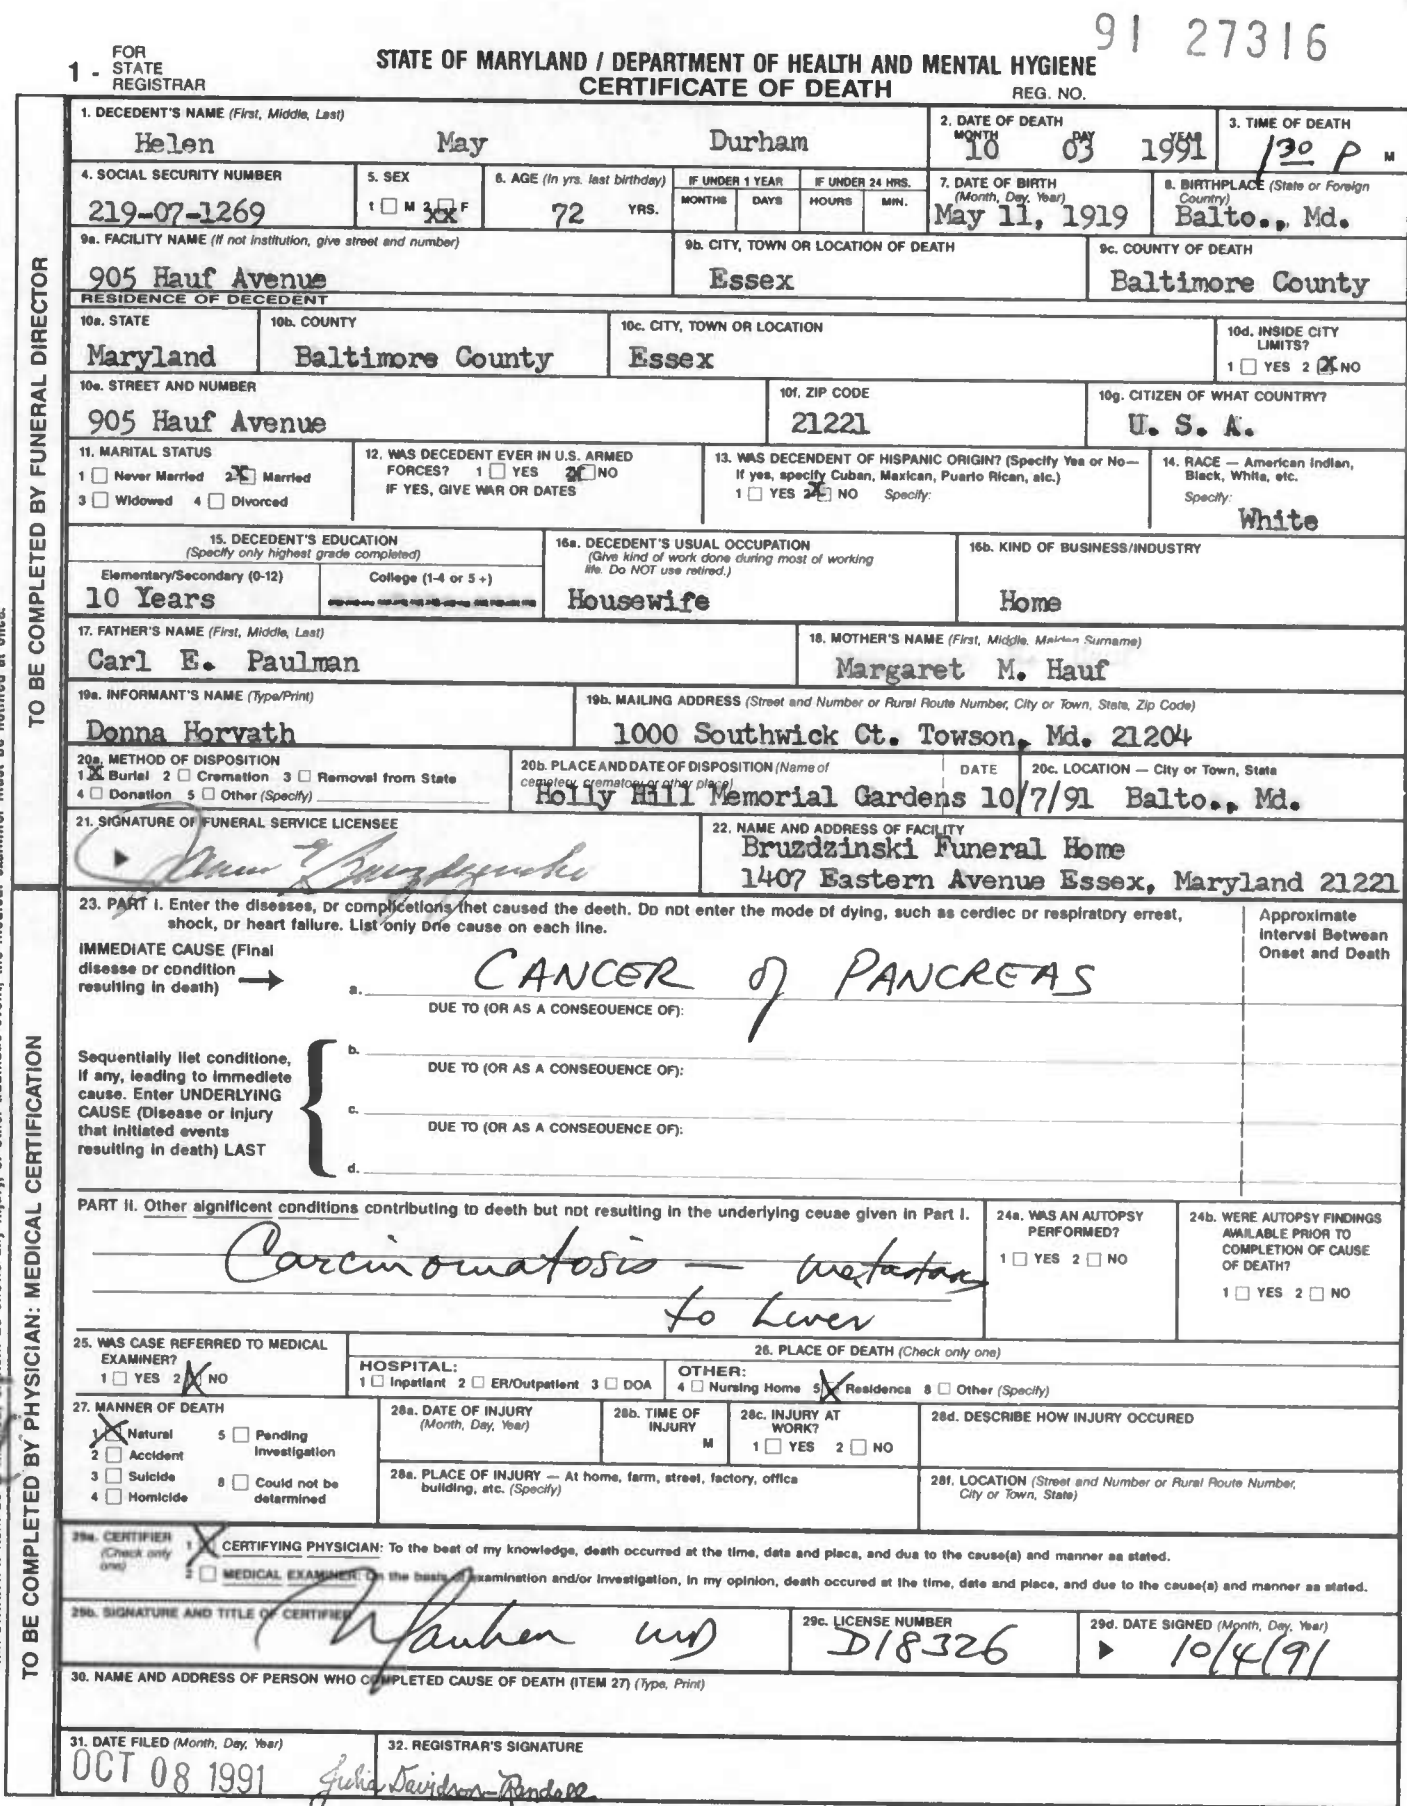 91 27316
1 - FOR STATE REGISTRAR
STATE OF MARYLAND / DEPARTMENT OF HEALTH AND MENTAL HYGIENE
CERTIFICATE OF DEATH
REG. NO.
TO BE COMPLETED BY FUNERAL DIRECTOR
1. DECEDENT'S NAME (First, Middle, Last)
Helen May Durham
2. DATE OF DEATH
MONTH DAY YEAR
10 03 1991
3. TIME OF DEATH
1 30 P M
4. SOCIAL SECURITY NUMBER
219-07-1269
5. SEX
1 M 2 XX F
6. AGE (In yrs. last birthday)
72 YRS.
IF UNDER 1 YEAR
MONTHS DAYS
IF UNDER 24 HRS.
HOURS MIN.
7. DATE OF BIRTH
(Month, Day, Year)
May 11, 1919
8. BIRTHPLACE (State or Foreign
Country)
Balto., Md.
9a. FACILITY NAME (If not institution, give street and number)
905 Hauf Avenue
9b. CITY, TOWN OR LOCATION OF DEATH
Essex
9c. COUNTY OF DEATH
Baltimore County
RESIDENCE OF DECEDENT
10a. STATE
Maryland
10b. COUNTY
Baltimore County
10c. CITY, TOWN OR LOCATION
Essex
10d. INSIDE CITY
LIMITS?
1 YES 2 X NO
10e. STREET AND NUMBER
905 Hauf Avenue
10f. ZIP CODE
21221
10g. CITIZEN OF WHAT COUNTRY?
U. S. A.
11. MARITAL STATUS
1 Never Married 2 X Married
3 Widowed 4 Divorced
12. WAS DECEDENT EVER IN U.S. ARMED
FORCES? 1 YES 2 X NO
IF YES, GIVE WAR OR DATES
13. WAS DECENDENT OF HISPANIC ORIGIN? (Specify Yes or No—
If yes, specify Cuban, Mexican, Puerto Rican, etc.)
1 YES 2 X NO Specify:
14. RACE — American Indian,
Black, White, etc.
Specify:
White
15. DECEDENT'S EDUCATION
(Specify only highest grade completed)
Elementary/Secondary (0-12)
10 Years
College (1-4 or 5 +)
16a. DECEDENT'S USUAL OCCUPATION
(Give kind of work done during most of working
life. Do NOT use retired.)
Housewife
16b. KIND OF BUSINESS/INDUSTRY
Home
17. FATHER'S NAME (First, Middle, Last)
Carl E. Paulman
18. MOTHER'S NAME (First, Middle, Maiden Surname)
Margaret M. Hauf
19a. INFORMANT'S NAME (Type/Print)
Donna Horvath
19b. MAILING ADDRESS (Street and Number or Rural Route Number, City or Town, State, Zip Code)
1000 Southwick Ct. Towson, Md. 21204
20a. METHOD OF DISPOSITION
1 X Burial 2 Cremation 3 Removal from State
4 Donation 5 Other (Specify)
20b. PLACE AND DATE OF DISPOSITION (Name of
cemetery, crematory or other place)
DATE
Holly Hill Memorial Gardens 10/7/91
20c. LOCATION — City or Town, State
Balto., Md.
21. SIGNATURE OF FUNERAL SERVICE LICENSEE
22. NAME AND ADDRESS OF FACILITY
Bruzdzinski Funeral Home
1407 Eastern Avenue Essex, Maryland 21221
TO BE COMPLETED BY PHYSICIAN: MEDICAL CERTIFICATION
23. PART I. Enter the diseases, or complications that caused the death. Do not enter the mode of dying, such as cardiac or respiratory arrest,
shock, or heart failure. List only one cause on each line.
Approximate
Interval Between
Onset and Death
IMMEDIATE CAUSE (Final
disease or condition
resulting in death)
a. CANCER of PANCREAS
DUE TO (OR AS A CONSEQUENCE OF):
Sequentially list conditions,
if any, leading to immediate
cause. Enter UNDERLYING
CAUSE (Disease or injury
that initiated events
resulting in death) LAST
b.
DUE TO (OR AS A CONSEQUENCE OF):
c.
DUE TO (OR AS A CONSEQUENCE OF):
d.
PART II. Other significant conditions contributing to death but not resulting in the underlying cause given in Part I.
Carcinomatosis —
to Liver
24a. WAS AN AUTOPSY
PERFORMED?
1 YES 2 NO
24b. WERE AUTOPSY FINDINGS
AVAILABLE PRIOR TO
COMPLETION OF CAUSE
OF DEATH?
1 YES 2 NO
25. WAS CASE REFERRED TO MEDICAL
EXAMINER?
1 YES 2 X NO
26. PLACE OF DEATH (Check only one)
HOSPITAL:
1 Inpatient 2 ER/Outpatient 3 DOA
OTHER:
4 Nursing Home 5 X Residence 6 Other (Specify)
27. MANNER OF DEATH
1 X Natural 5 Pending
Investigation
2 Accident
3 Suicide 6 Could not be
determined
4 Homicide
28a. DATE OF INJURY
(Month, Day, Year)
28b. TIME OF
INJURY
M
28c. INJURY AT
WORK?
1 YES 2 NO
28d. DESCRIBE HOW INJURY OCCURED
28e. PLACE OF INJURY — At home, farm, street, factory, office
building, etc. (Specify)
28f. LOCATION (Street and Number or Rural Route Number,
City or Town, State)
29a. CERTIFIER
(Check only
one)
1 X CERTIFYING PHYSICIAN: To the best of my knowledge, death occurred at the time, date and place, and due to the cause(s) and manner as stated.
2 MEDICAL EXAMINER: On the basis of examination and/or investigation, in my opinion, death occured at the time, date and place, and due to the cause(s) and manner as stated.
29b. SIGNATURE AND TITLE OF CERTIFIER
MD
29c. LICENSE NUMBER
D18326
29d. DATE SIGNED (Month, Day, Year)
10/4/91
30. NAME AND ADDRESS OF PERSON WHO COMPLETED CAUSE OF DEATH (ITEM 27) (Type, Print)
31. DATE FILED (Month, Day, Year)
OCT 08 1991
32. REGISTRAR'S SIGNATURE
Julia Davidson-Randall